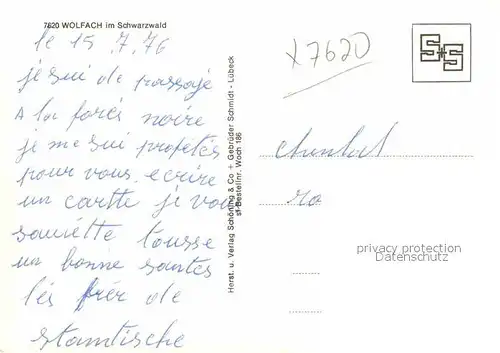 7620 WOLFACH im Schwarzwald
le 15.7.76
je sui de passaje
A la forés noire
je me sui profetés
pour vous ecrire
un cartte je vou
souaitte tousse
un bonne santes
les frér de
stamtische
Herst. u. Verlag Schöning & Co + Gebrüder Schmidt - Lübeck
Bestellnr. Woch 186
x7620
S+S
privacy protection
Datenschutz